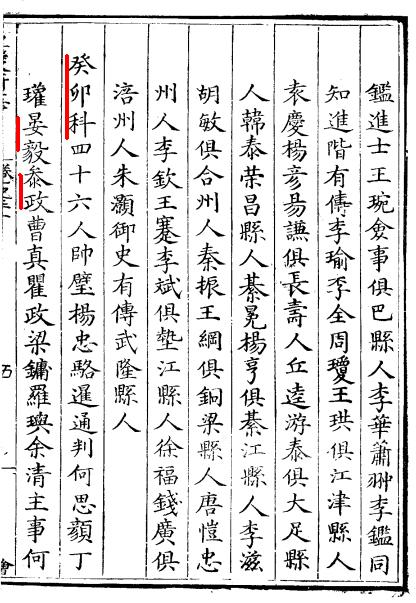 鑑進士王琬僉事俱巴縣人李華蕭翀李鑑同
知進階有傳李瑜李全周瓊王珙俱江津縣人
袁慶楊彥昜謙俱長壽人丘逵游泰俱大足縣
人韓泰荣昌縣人綦冕楊亨俱綦江縣人李滋
胡敏俱合州人秦桭王綱俱銅梁縣人唐愷忠
州人李欽王蹇李斌俱墊江縣人徐福錢廣俱
涪州人朱灝御史有傳武隆縣人
癸卯科四十六人帥璧楊忠駱暹通判何思顏丁
瓘晏毅叅政曹真瞿政梁鏞羅璵余清主事何